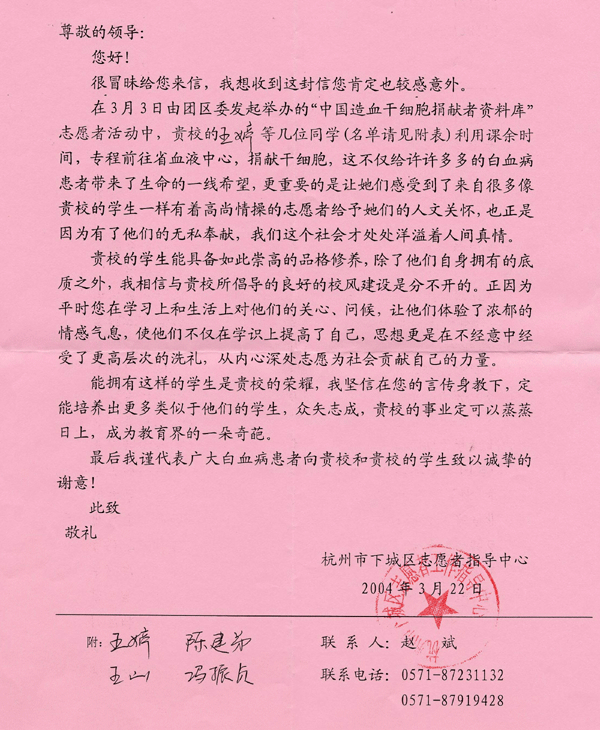 尊敬的领导：
您好！
很冒昧给您来信，我想收到这封信您肯定也较感意外。
在3月3日由团区委发起举办的“中国造血干细胞捐献者资料库”
志愿者活动中，贵校的王婷等几位同学(名单请见附表)利用课余时
间，专程前往省血液中心，捐献干细胞，这不仅给许许多多的白血病
患者带来了生命的一线希望，更重要的是让她们感受到了来自很多像
贵校的学生一样有着高尚情操的志愿者给予她们的人文关怀，也正是
因为有了他们的无私奉献，我们这个社会才处处洋溢着人间真情。
贵校的学生能具备如此崇高的品格修养，除了他们自身拥有的底
质之外，我相信与贵校所倡导的良好的校风建设是分不开的。正因为
平时您在学习上和生活上对他们的关心、问候，让他们体验了浓郁的
情感气息，使他们不仅在学识上提高了自己，思想更是在不经意中经
受了更高层次的洗礼，从内心深处志愿为社会贡献自己的力量。
能拥有这样的学生是贵校的荣耀，我坚信在您的言传身教下，定
能培养出更多类似于他们的学生，众矢志成，贵校的事业定可以蒸蒸
日上，成为教育界的一朵奇葩。
最后我谨代表广大白血病患者向贵校和贵校的学生致以诚挚的
谢意！
此致
敬礼
杭州市下城区志愿者指导中心
2004年3月22日
附：王婷 陈建
联系人：赵 斌
王山 冯振贞
联系电话：0571-87231132
0571-87919428